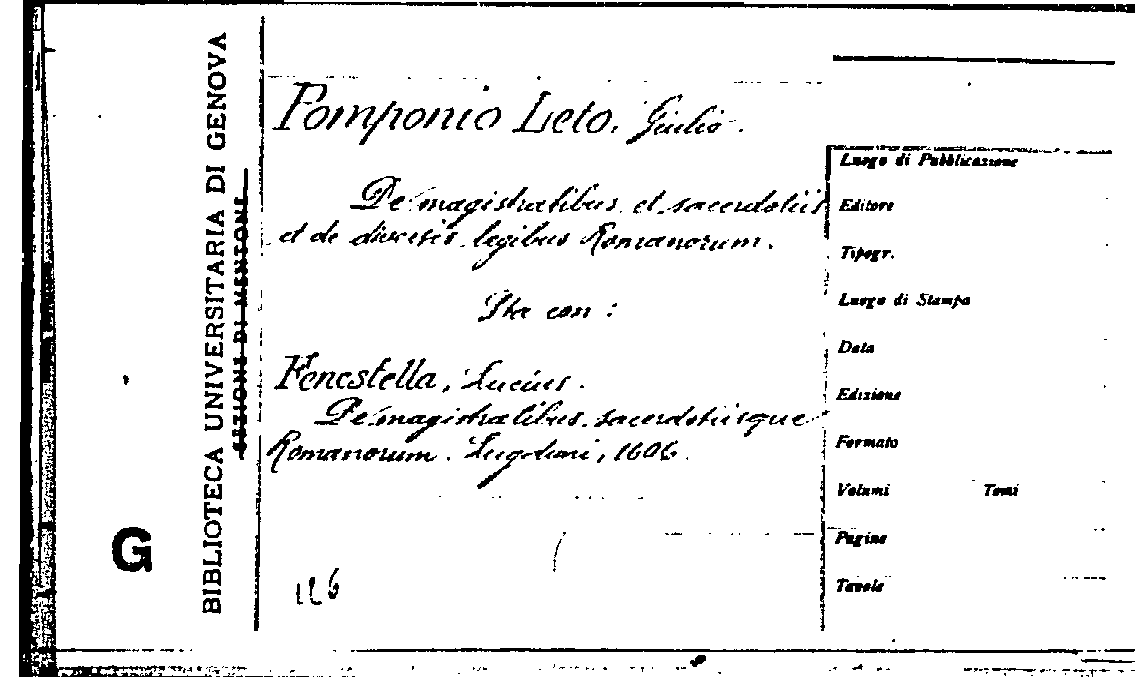 BIBLIOTECA UNIVERSITARIA DI GENOVA
SEZIONE DI MENTONE
G
Pomponio Leto, Giulio.
De magistratibus et sacerdotiis
et de diversis legibus Romanorum.
Sta con:
Fenestella, Lucius.
De magistratibus, sacerdotiisque
Romanorum. Lugduni, 1606.
126
Luogo di Pubblicazione
Editore
Tipogr.
Luogo di Stampa
Data
Edizione
Formato
Volumi Tomi
Pagine
Tavole